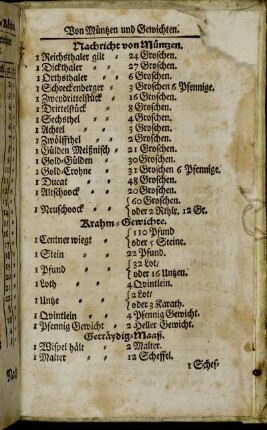 Von Müntzen und Gewichten.
Nachricht von Müntzen.
1 Reichsthaler gilt 24 Groschen.
1 Dickthaler 27 Groschen.
1 Orthsthaler 6 Groschen.
1 Schreckenberger 3 Groschen 6 Pfennige.
1 Zweydrittelstück 16 Groschen.
1 Drittelstück 8 Groschen.
1 Sechsthel 4 Groschen.
1 Achtel 3 Groschen.
1 Zwölffthel 2 Groschen.
1 Gülden Meißnisch 21 Groschen.
1 Gold-Gülden 30 Groschen.
1 Gold-Crohne 31 Groschen 6 Pfennige.
1 Ducat 48 Groschen.
1 Altschock 20 Groschen.
1 Neuschock { 60 Groschen.
oder 2 Rthlr. 12 Gr.
Krahm-Gewichte.
1 Centner wiegt { 110 Pfund
oder 5 Steine.
1 Stein 22 Pfund.
1 Pfund { 32 Lot/
oder 16 Untzen.
1 Loth 4 Qvintlein.
1 Untze { 2 Lot/
oder 3 Karath.
1 Qvintlein 4 Pfennig Gewicht.
1 Pfennig Gewicht 2 Heller Gewicht.
Geträydig-Maaß.
1 Wispel hält 2 Malter.
1 Malter 12 Scheffel.
1 Schef-